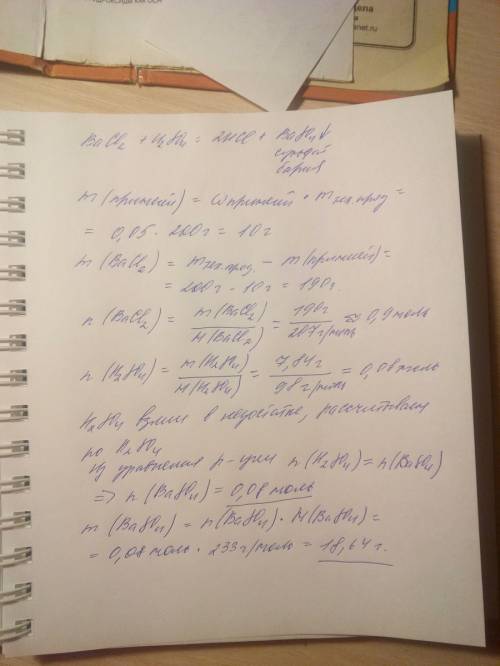 дела
anet.ru
BaCl₂ + H₂SO₄ = 2HCl + BaSO₄↓
сульфат
бария
m (примесей) = ω примесей • m тех. прод =
= 0,05 • 200г = 10г
m (BaCl₂) = m тех. прод. - m (примесей) =
= 200г - 10г = 190г.
n (BaCl₂) = m(BaCl₂) / M(BaCl₂) = 190г / 207г/моль ≈ 0,9 моль
n (H₂SO₄) = m(H₂SO₄) / M(H₂SO₄) = 7,84г / 98г/моль = 0,08 моль
H₂SO₄ взяли в недостатке, рассчитываем
по H₂SO₄
Из уравнения р-ции n (H₂SO₄) = n(BaSO₄)
=> n (BaSO₄) = 0,08 моль
m (BaSO₄) = n(BaSO₄) • M(BaSO₄) =
= 0,08 моль • 233 г/моль = 18,64 г.